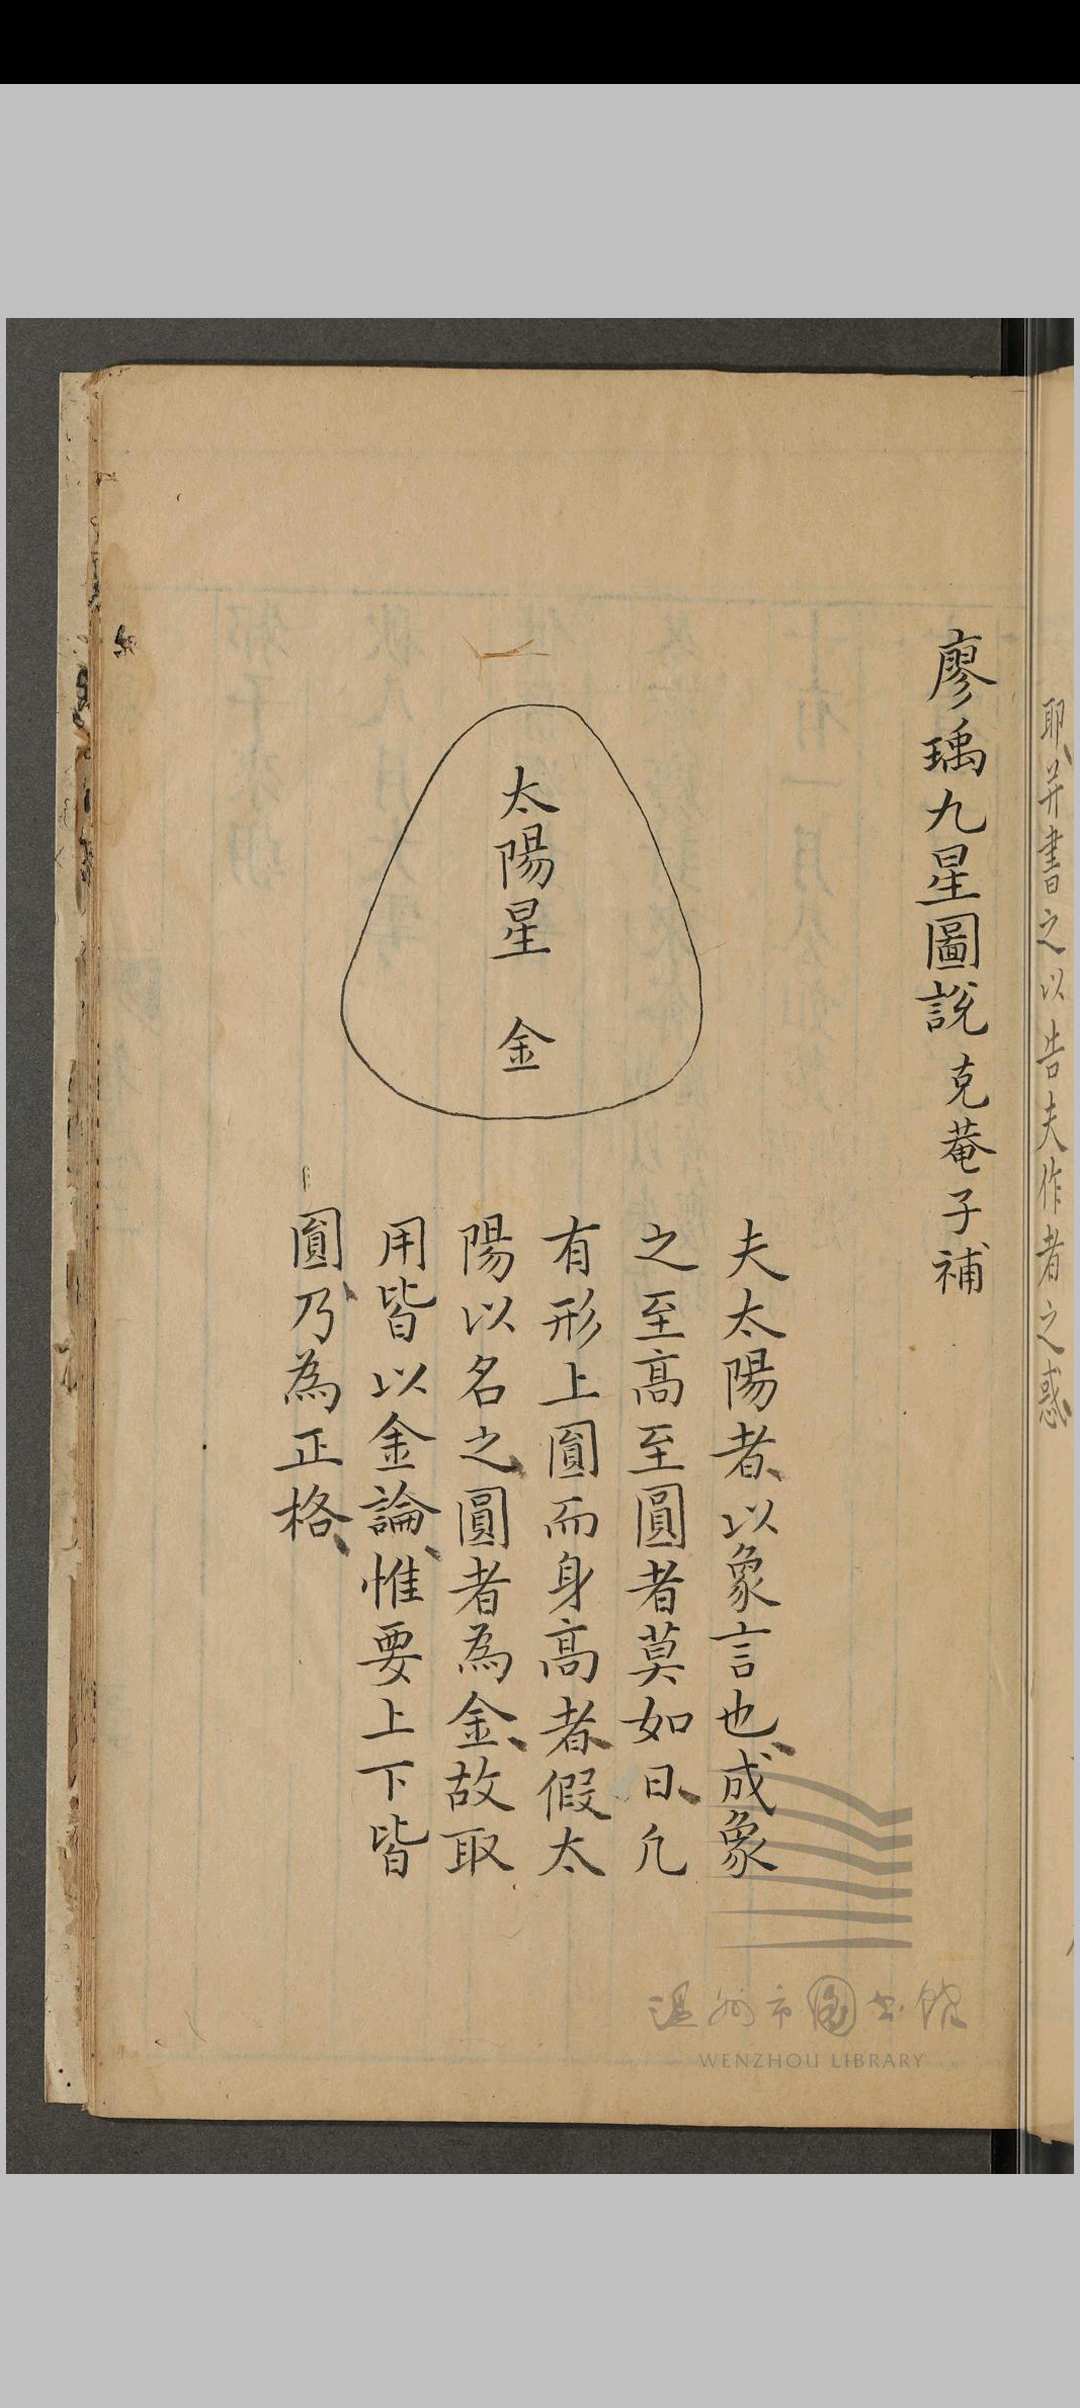 耶并書之以告夫作者之惑
廖瑀九星圖說 克菴子補
太陽星 金
夫太陽者、以象言也、成象
之至高至圓者莫如日、凢
有形上圓而身高者、假太
陽以名之、圓者為金、故取
用皆以金論、惟要上下皆
圓、乃為正格、
温州市图书馆
WENZHOU LIBRARY